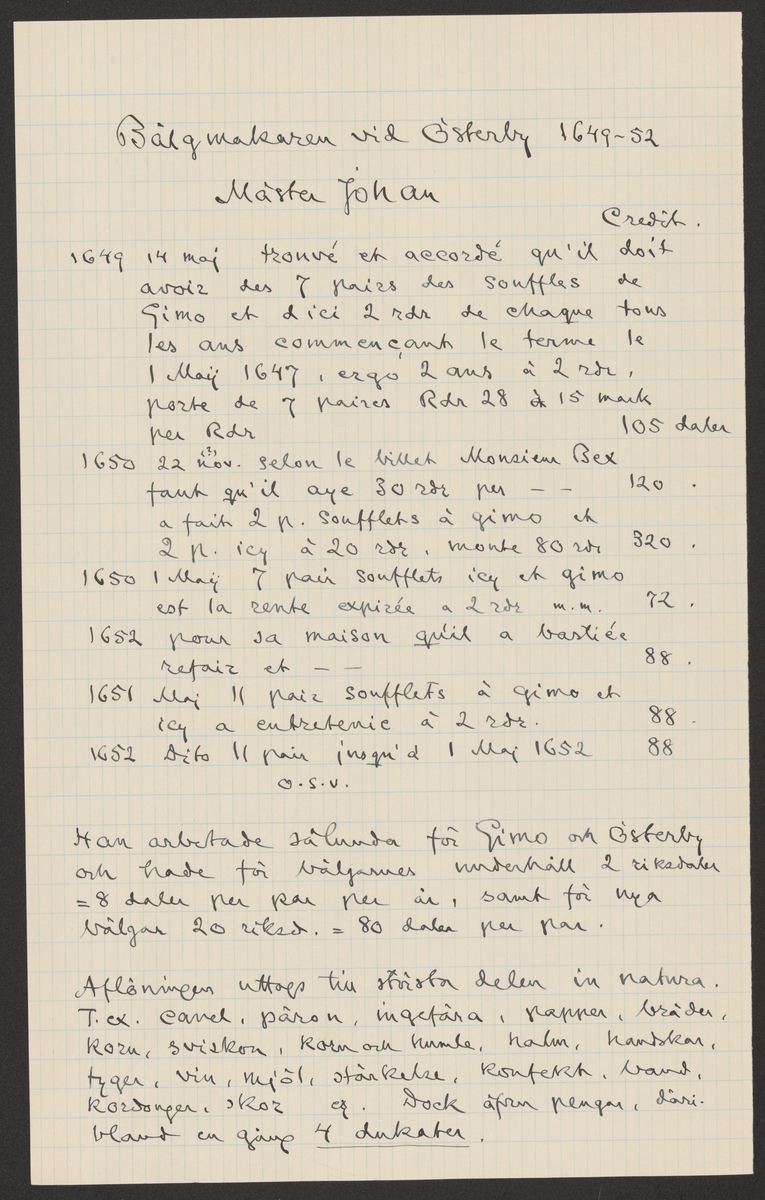 Bälgmakaren vid Österby 1649-52
Mäster Johan
Credit.
1649 14 maj trouvé et accordé qu'il doit
avoir des 7 pairs des souffles de
Gimo et d'ici 2 rdr de chaque tous
les ans commençant le terme le
1 Maÿ 1647, ergo 2 ans à 2 rdr,
porte de 7 paires Rdr 28 à 15 mark
per Rdr 105 daler
1650 22 nov. (?) selon le billet Monsieur Bex
faut qu'il aye 30 rdr per – – 120 .
a fait 2 p. soufflets à gimo et
2 p. icy à 20 rdr, monte 80 rdr 320 .
1650 1 Maÿ 7 pair soufflets icy et gimo
est la rente expirée a 2 rdr m.m. 72 .
1652 pour sa maison qu'il a bastiée
refair et – – 88 .
1651 Maj 11 pair soufflets à gimo et
icy a entretenir à 2 rdr. 88 .
1652 Dito 11 pair jusqu'à 1 Maj 1652 88
o.s.v.
Han arbetade sålunda för Gimo och Österby
och hade för bälgarnes underhåll 2 riksdaler
= 8 daler per par per år, samt för nya
bälgar 20 riksd. = 80 daler per par.
Aflöningen uttogs till största delen in natura.
T. ex. canel, päron, ingefära, papper, bräder,
korn, sviskon, korn och humle, halm, handskar,
tyger, vin, mjöl, stärkelse, konfekt, band,
kordonger, skor Dock äfven pengar, däri-
bland en gång 4 dukater.